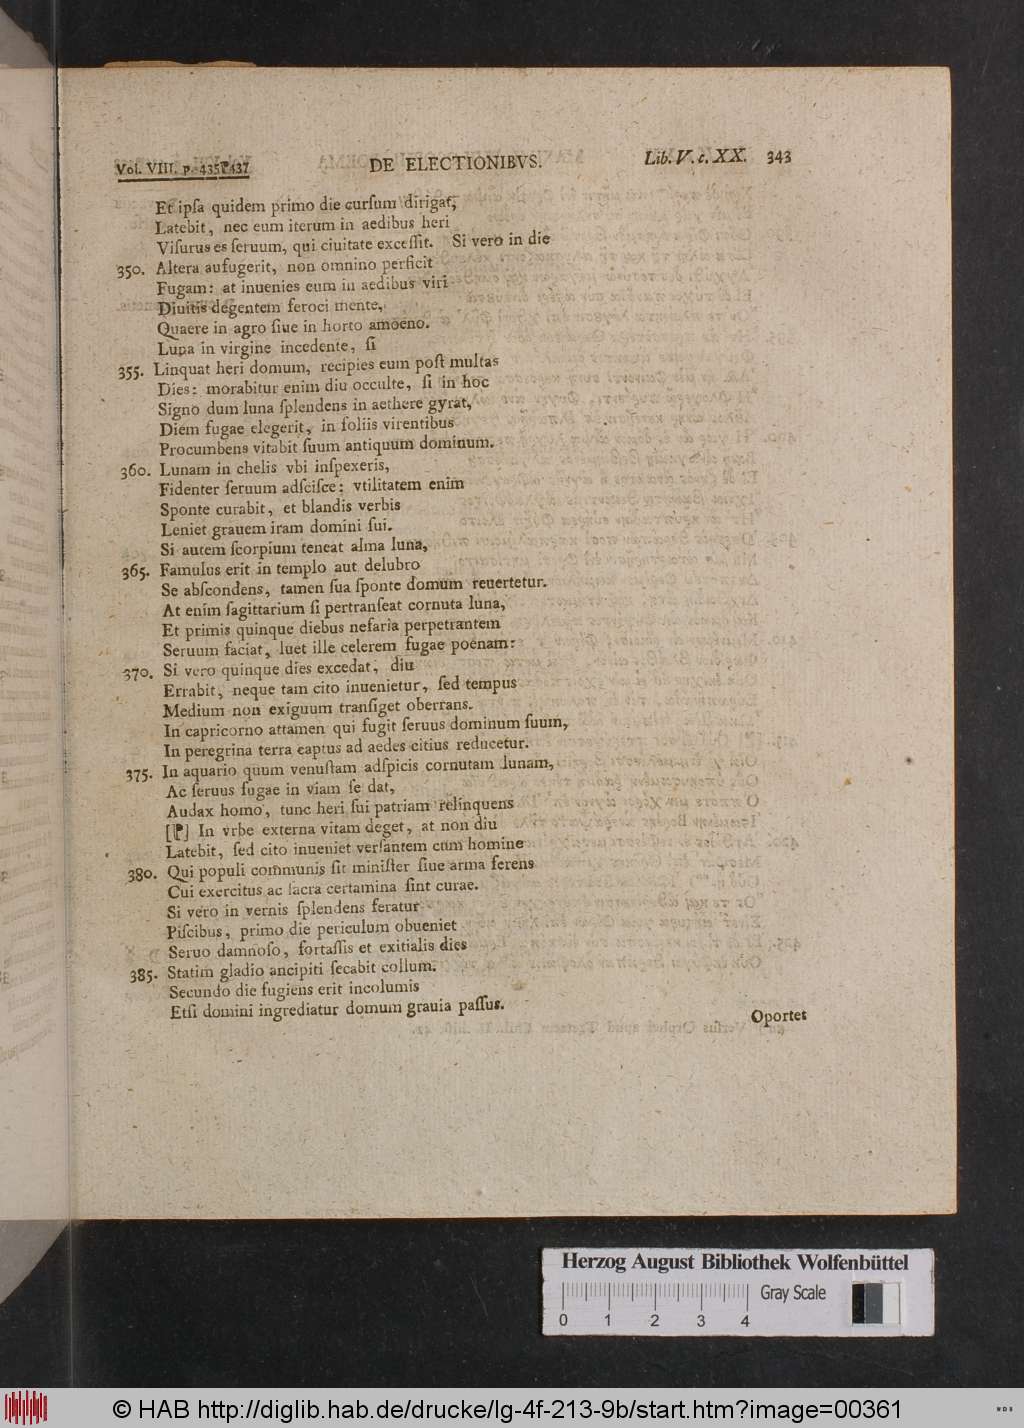 Vol. VIII. p. 435 437 DE ELECTIONIBVS. Lib. V. c. XX. 343
Et ipſa quidem primo die curſum dirigat,
Latebit, nec eum iterum in aedibus heri
Viſurus es ſeruum, qui ciuitate exceſſit. Si vero in die
350. Altera aufugerit, non omnino perficit
Fugam: at inuenies eum in aedibus viri
Diuitis degentem feroci mente,
Quaere in agro ſiue in horto amoeno.
Luna in virgine incedente, ſi
355. Linquat heri domum, recipies eum poſt multas
Dies: morabitur enim diu occulte, ſi in hoc
Signo dum luna ſplendens in aethere gyrat,
Diem fugae elegerit, in foliis virentibus
Procumbens vitabit ſuum antiquum dominum.
360. Lunam in chelis vbi inſpexeris,
Fidenter ſeruum adſciſce: vtilitatem enim
Sponte curabit, et blandis verbis
Leniet grauem iram domini ſui.
Si autem ſcorpium teneat alma luna,
365. Famulus erit in templo aut delubro
Se abſcondens, tamen ſua ſponte domum reuertetur.
At enim ſagittarium ſi pertranſeat cornuta luna,
Et primis quinque diebus nefaria perpetrantem
Seruum faciat, luet ille celerem fugae poenam:
370. Si vero quinque dies excedat, diu
Errabit, neque tam cito inuenietur, ſed tempus
Medium non exiguum tranſiget oberrans.
In capricorno attamen qui fugit ſeruus dominum ſuum,
In peregrina terra captus ad aedes citius reducetur.
375. In aquario quum venuſtam adſpicis cornutam lunam,
Ac ſeruus fugae in viam ſe dat,
Audax homo, tunc heri ſui patriam relinquens
In vrbe externa vitam deget, at non diu
Latebit, ſed cito inueniet verſantem cum homine
380. Qui populi communis ſit miniſter ſiue arma ferens
Cui exercitus ac ſacra certamina ſint curae.
Si vero in vernis ſplendens feratur
Piſcibus, primo die periculum obueniet
Seruo damnoſo, fortaſſis et exitialis dies
385. Statim gladio ancipiti ſecabit collum.
Secundo die fugiens erit incolumis
Etſi domini ingrediatur domum grauia paſſus.
Oportet
Herzog August Bibliothek Wolfenbüttel
Gray Scale
0 1 2 3 4
© HAB http://diglib.hab.de/drucke/lg-4f-213-9b/start.htm?image=00361